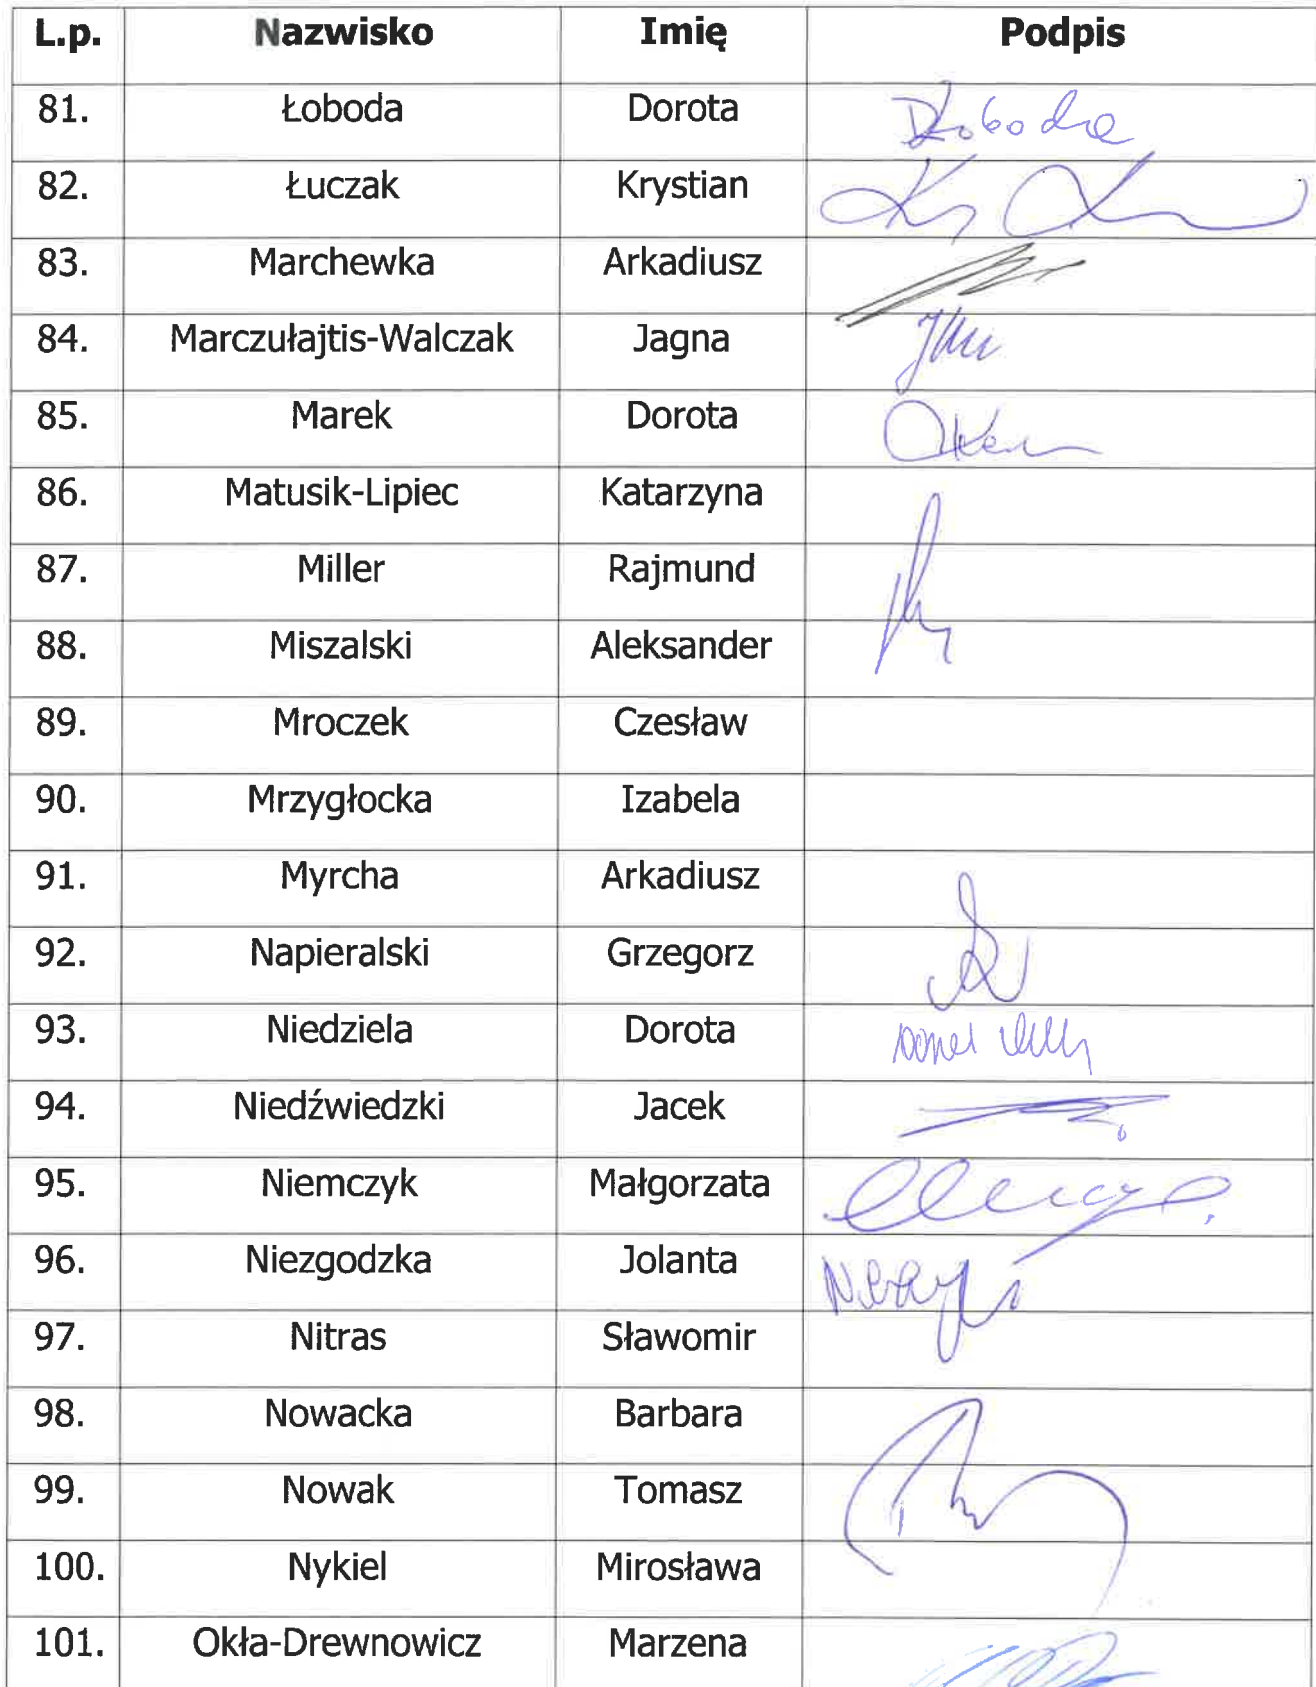 L.p. Nazwisko Imię Podpis
81. Łoboda Dorota DŁoboda
82. Łuczak Krystian
83. Marchewka Arkadiusz
84. Marczułajtis-Walczak Jagna
85. Marek Dorota
86. Matusik-Lipiec Katarzyna
87. Miller Rajmund
88. Miszalski Aleksander
89. Mroczek Czesław
90. Mrzygłocka Izabela
91. Myrcha Arkadiusz
92. Napieralski Grzegorz
93. Niedziela Dorota
94. Niedźwiedzki Jacek
95. Niemczyk Małgorzata
96. Niezgodzka Jolanta
97. Nitras Sławomir
98. Nowacka Barbara
99. Nowak Tomasz
100. Nykiel Mirosława
101. Okła-Drewnowicz Marzena